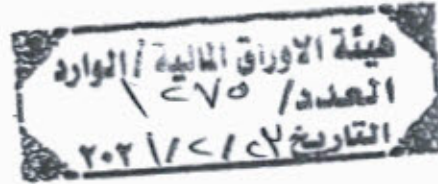 هيئة الاوراق المالية / الوارد
العدد / ١٢٧٥
التاريخ ٢٣/٢/٢٠٢١